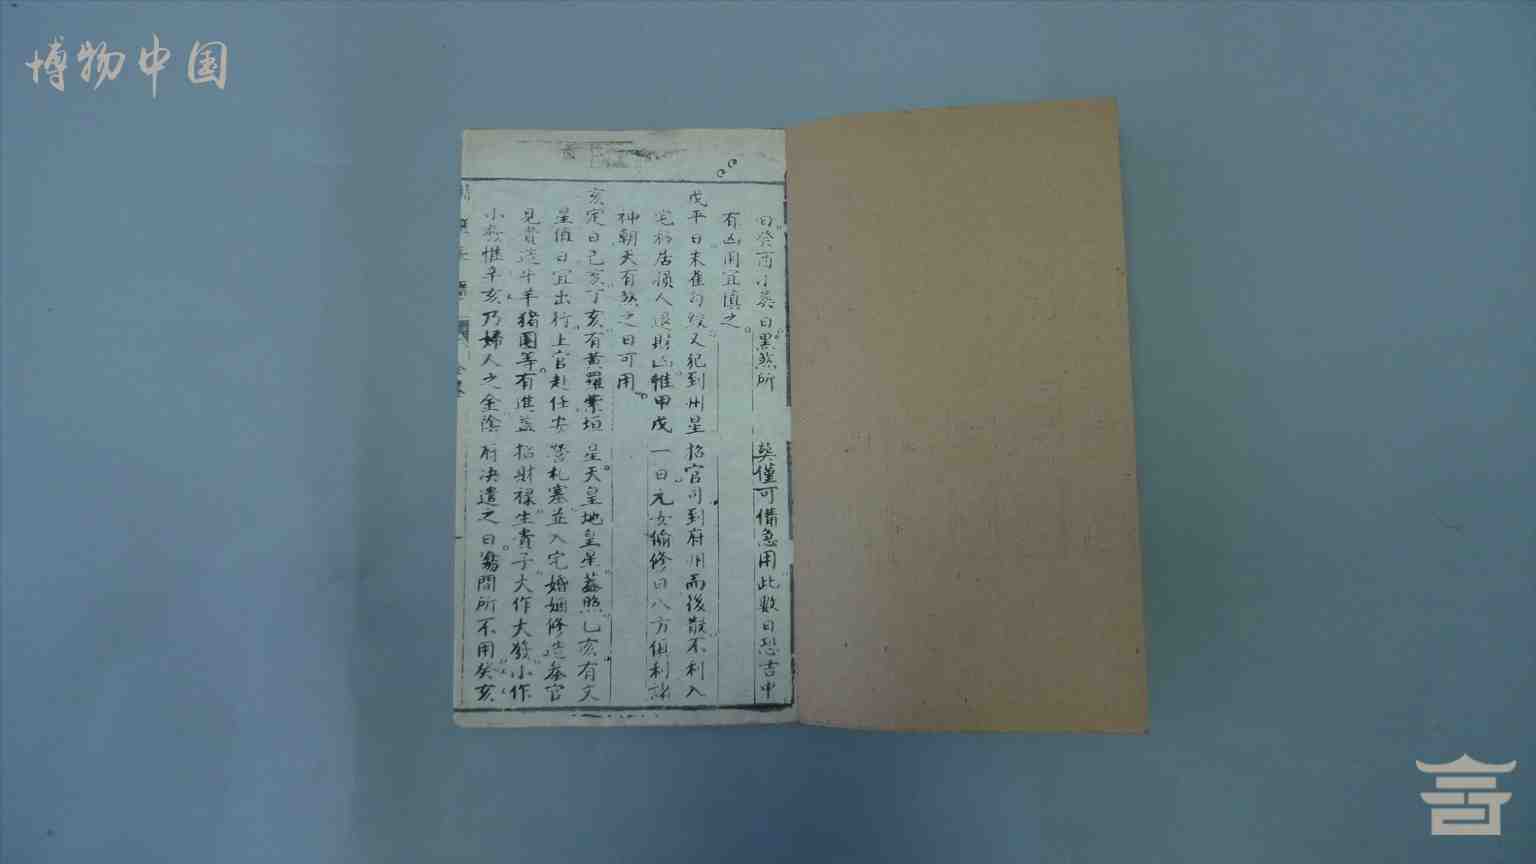 博物中国
日癸酉小葬日黑煞所葬僅可備急用此數日恐吉中
有凶用宜慎之
戌平日朱雀勾絞又犯到州星招官司到府州而後散不利入
宅移居損人退財凶惟甲戌一日元女偷修日八方俱利諸
神朝天有煞之日可用
亥定日己亥丁亥有黄羅紫垣星天皇地皇星蓋照乙亥有文
星值日宜出行上官赴任安營札寨並入宅婚姻修造官
見貴造牛羊猪圈等有進益招財禄生貴子大作大發小作
小發惟辛亥乃婦人之金陰府决遣之日間所不用癸亥